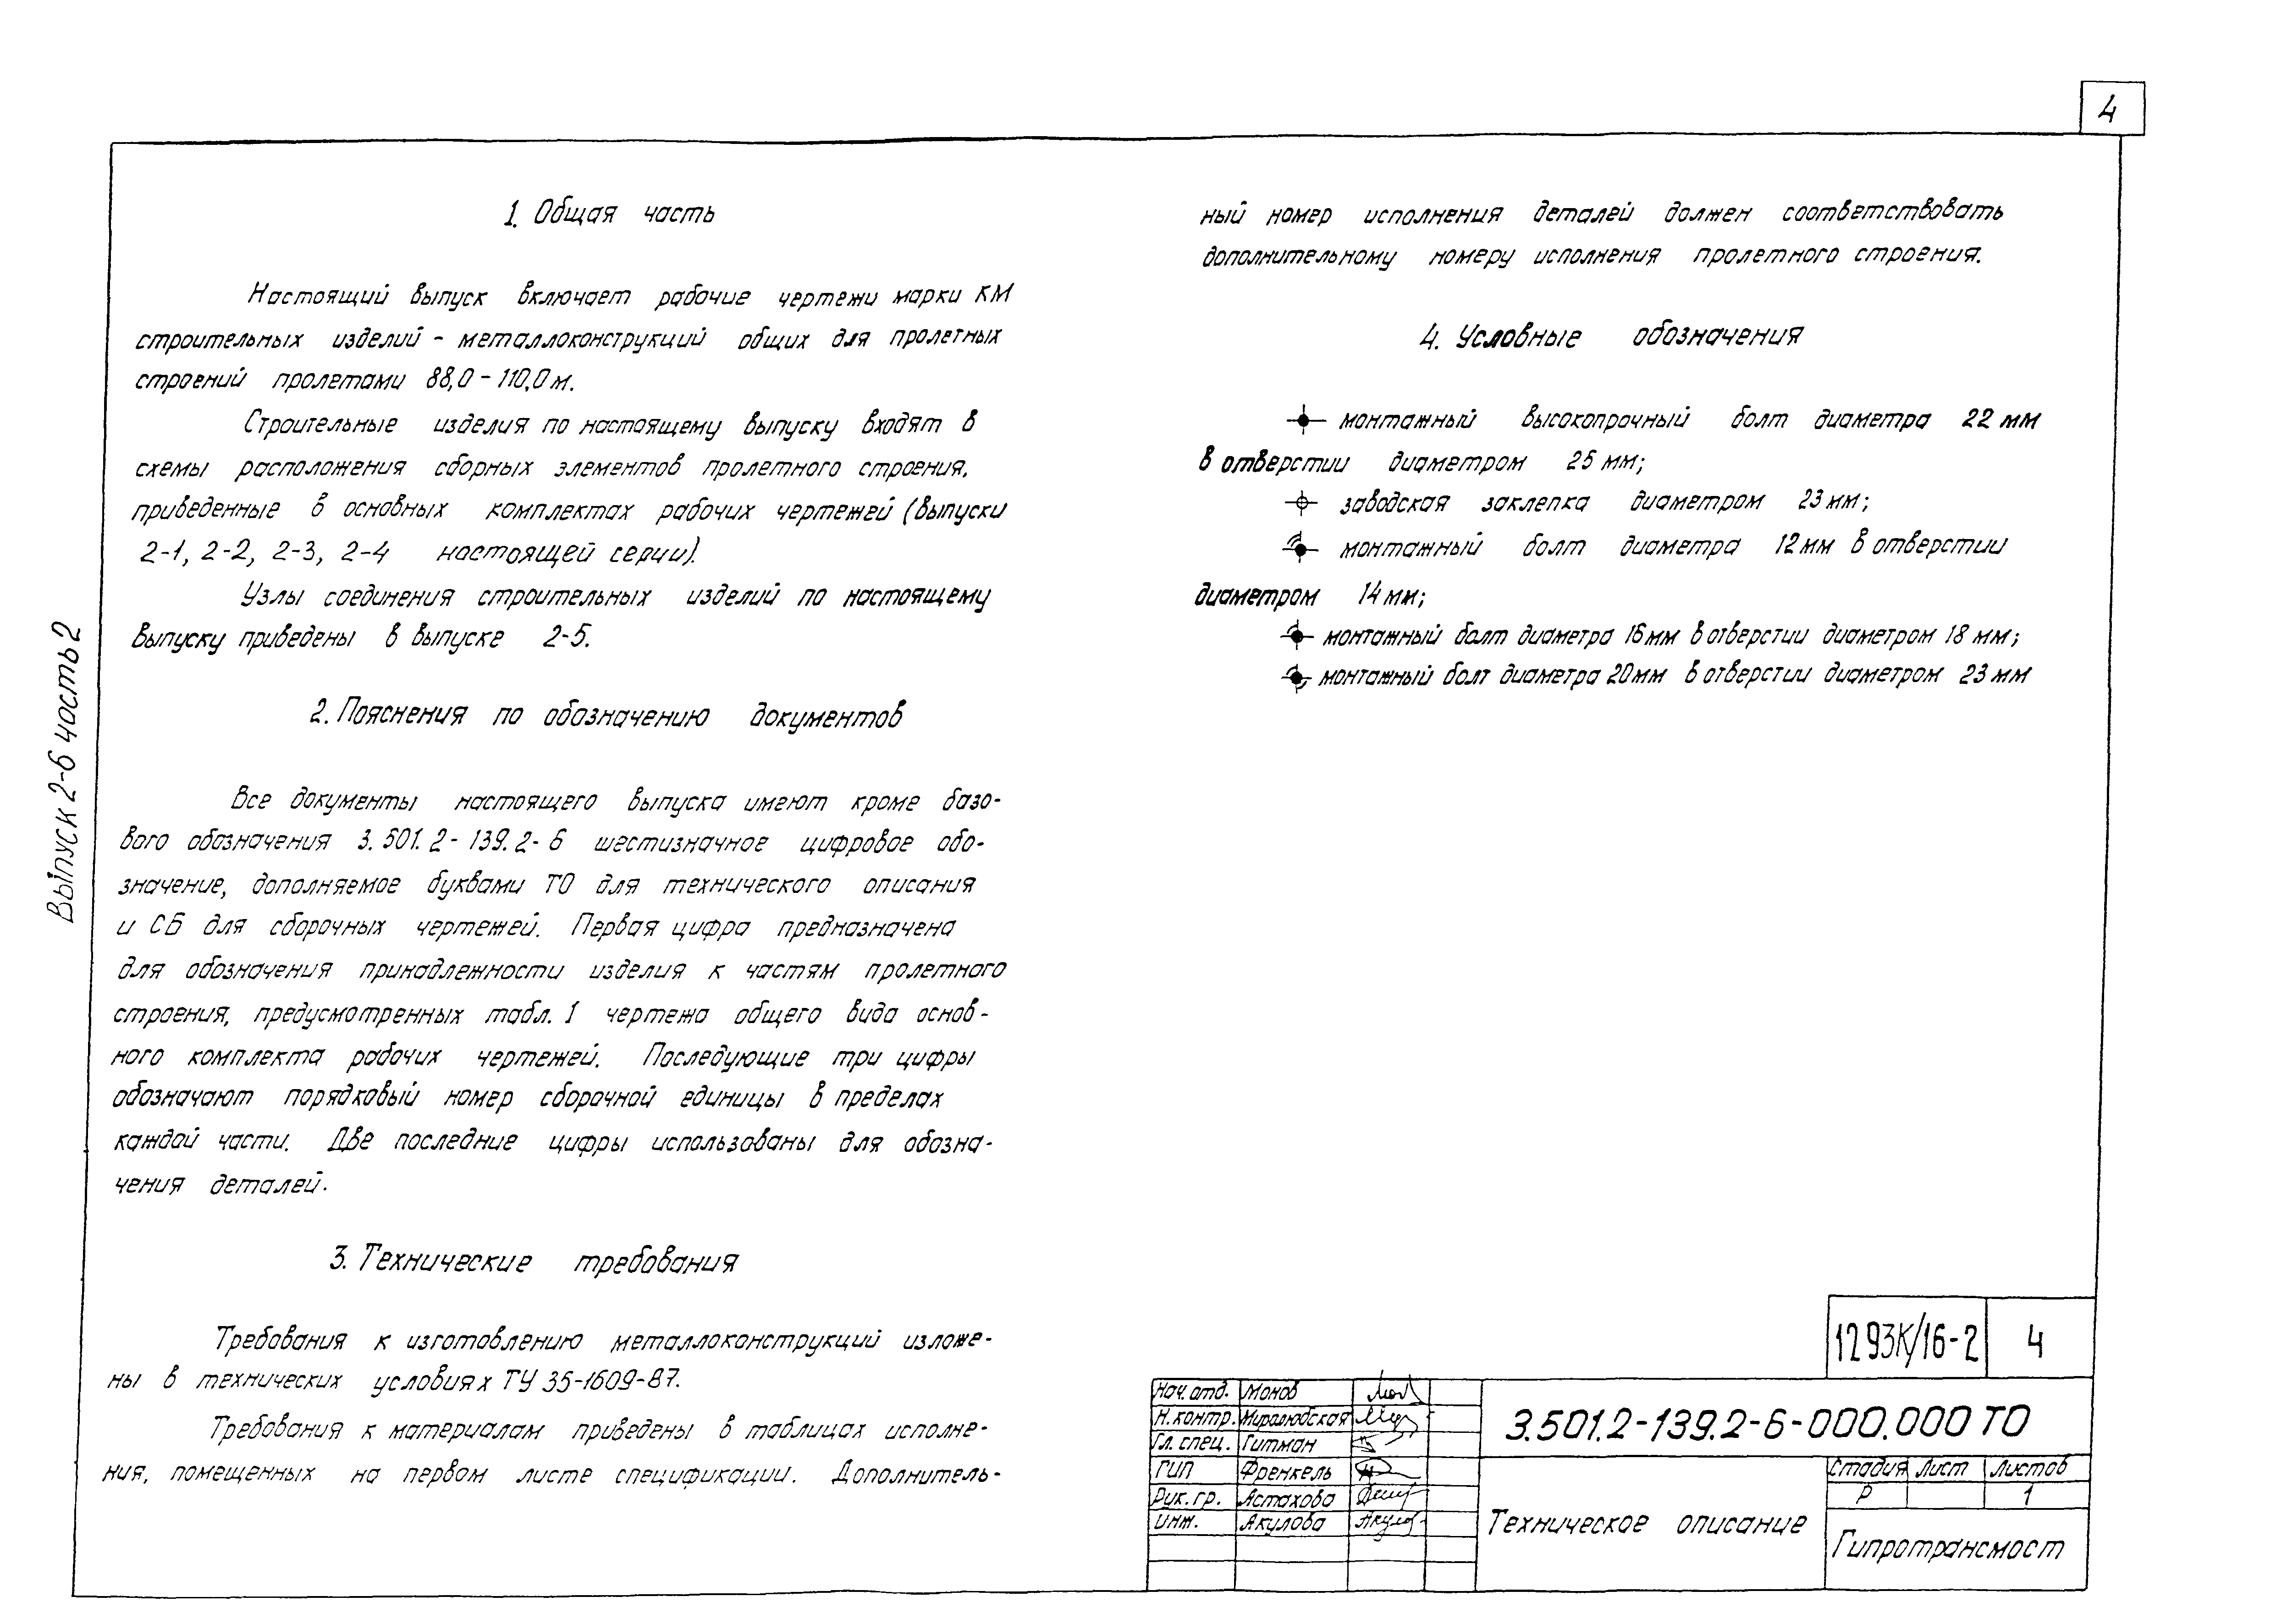 4
1. Общая часть
Настоящий выпуск включает рабочие чертежи марки КМ
строительных изделий - металлоконструкций общих для пролетных
строений пролетами 88,0 - 110,0 м.
Строительные изделия по настоящему выпуску входят в
схемы расположения сборных элементов пролетного строения,
приведенные в основных комплектах рабочих чертежей (выпуски
2-1, 2-2, 2-3, 2-4 настоящей серии).
Узлы соединения строительных изделий по настоящему
выпуску приведены в выпуске 2-5.
2. Пояснения по обозначению документов
Все документы настоящего выпуска имеют кроме базо-
вого обозначения 3.501.2-139.2-6 шестизначное цифровое обо-
значение, дополняемое буквами ТО для технического описания
и СБ для сборочных чертежей. Первая цифра предназначена
для обозначения принадлежности изделия к частям пролетного
строения, предусмотренных табл. 1 чертежа общего вида основ-
ного комплекта рабочих чертежей. Последующие три цифры
обозначают порядковый номер сборочной единицы в пределах
каждой части. Две последние цифры использованы для обозна-
чения деталей.
3. Технические требования
Требования к изготовлению металлоконструкций изложе-
ны в технических условиях ТУ 35-1609-87.
Требования к материалам приведены в таблицах исполне-
ния, помещенных на первом листе спецификации. Дополнитель-
ный номер исполнения деталей должен соответствовать
дополнительному номеру исполнения пролетного строения.
4. Условные обозначения
монтажный высокопрочный болт диаметра 22 мм
в отверстии диаметром 25 мм;
заводская заклепка диаметром 23 мм;
монтажный болт диаметра 12 мм в отверстии
диаметром 14 мм;
монтажный болт диаметра 16 мм в отверстии диаметром 18 мм;
монтажный болт диаметра 20 мм в отверстии диаметром 23 мм
Выпуск 2-6 часть 2
1293К/16-2 4
Нач. отд. Монов
Н. контр. Миролюбская
Гл. спец. Гитман
ГИП Френкель
Рук. гр. Астахова
Инж. Акулова
3.501.2-139.2-6-000.000 ТО
Техническое описание
Стадия Лист Листов
Р 1
Гипротрансмост